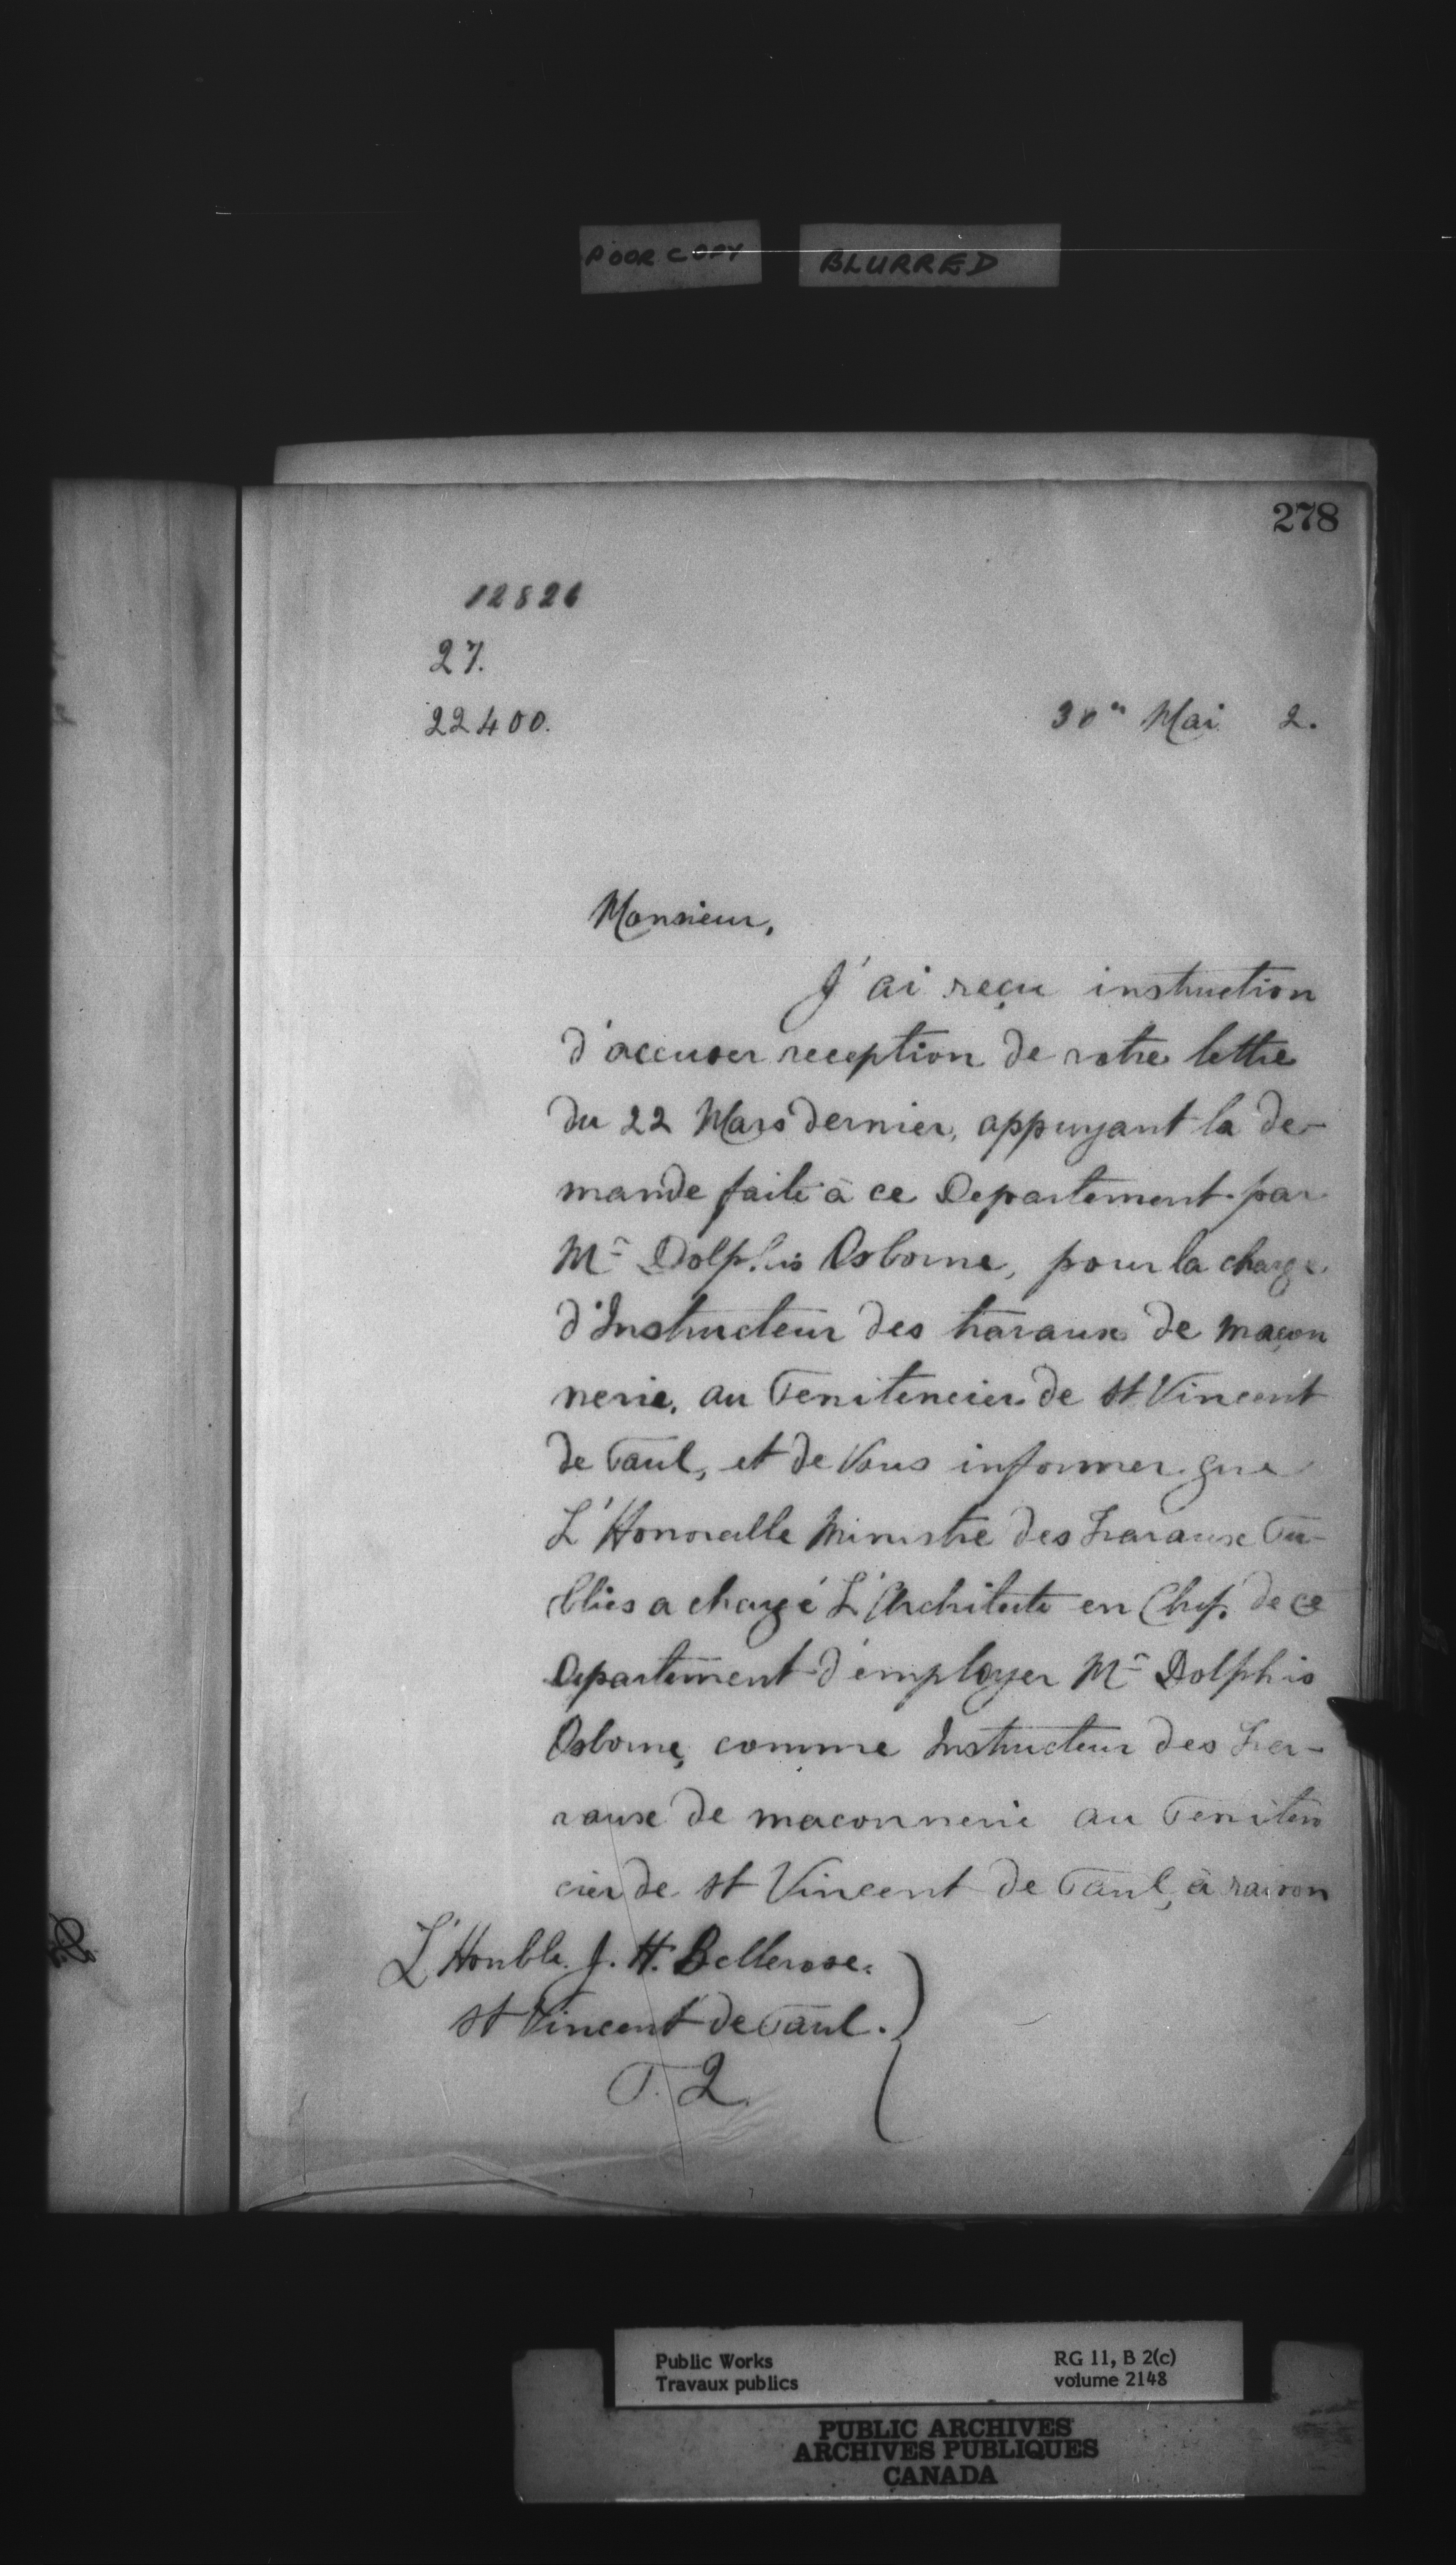 POOR COPY BLURRED
278
12826
27.
22400.
30 Mai 2.
Monsieur,
J'ai reçu instruction
d'accuser reception de votre lettre
du 22 Mars dernier, appuyant la de-
mande faite à ce Departement par
Mr Dolphis Osborne, pour la charge
d'Instructeur des travaux de maçon
nerie, au Penitencier de St Vincent
de Paul, et de Vous informer que
L'Honorable Ministre des Travaux Pu-
blics a chargé L'Architecte en Chef. de ce
Departement d'employer Mr Dolphis
Osborne, comme Instructeur des Tra-
vaux de maconnerie au Peniten
cier de St Vincent de Paul, à raison
L'Honble. J. H. Bellerose.
St Vincent de Paul.
P. Q.
Public Works
Travaux publics
RG 11, B 2(c)
volume 2148
PUBLIC ARCHIVES
ARCHIVES PUBLIQUES
CANADA